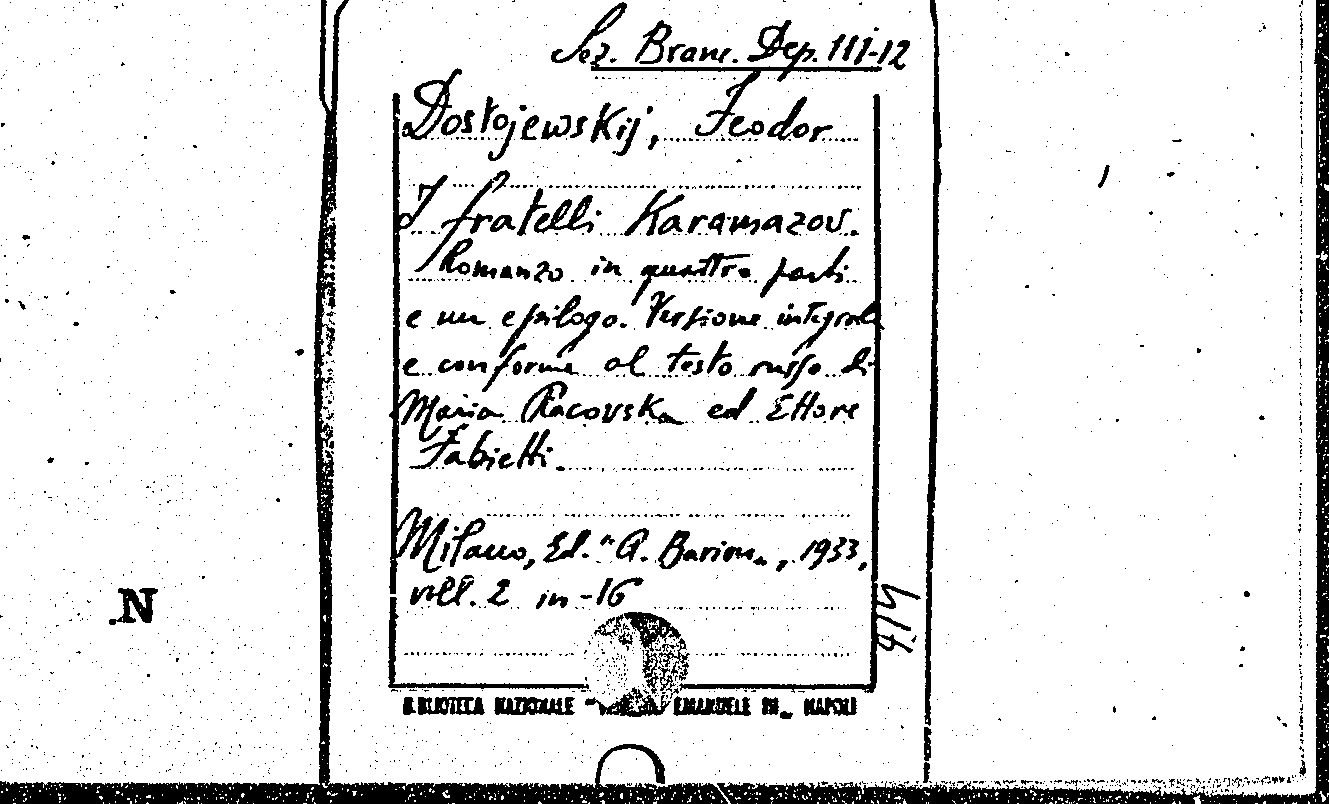 Sez. Branc. Dep. 111-12
Dostojewskij, Feodor
I fratelli Karamazov.
Romanzo in quattro parti
e un epilogo. Versione integrale
e conforme al testo russo di
Maria Racovska ed Ettore
Fabietti.
Milano, Ed. "A. Barion„, 1933,
voll. 2 in-16
.N
BIBLIOTECA NAZIONALE " EMANUELE III„ NAPOLI